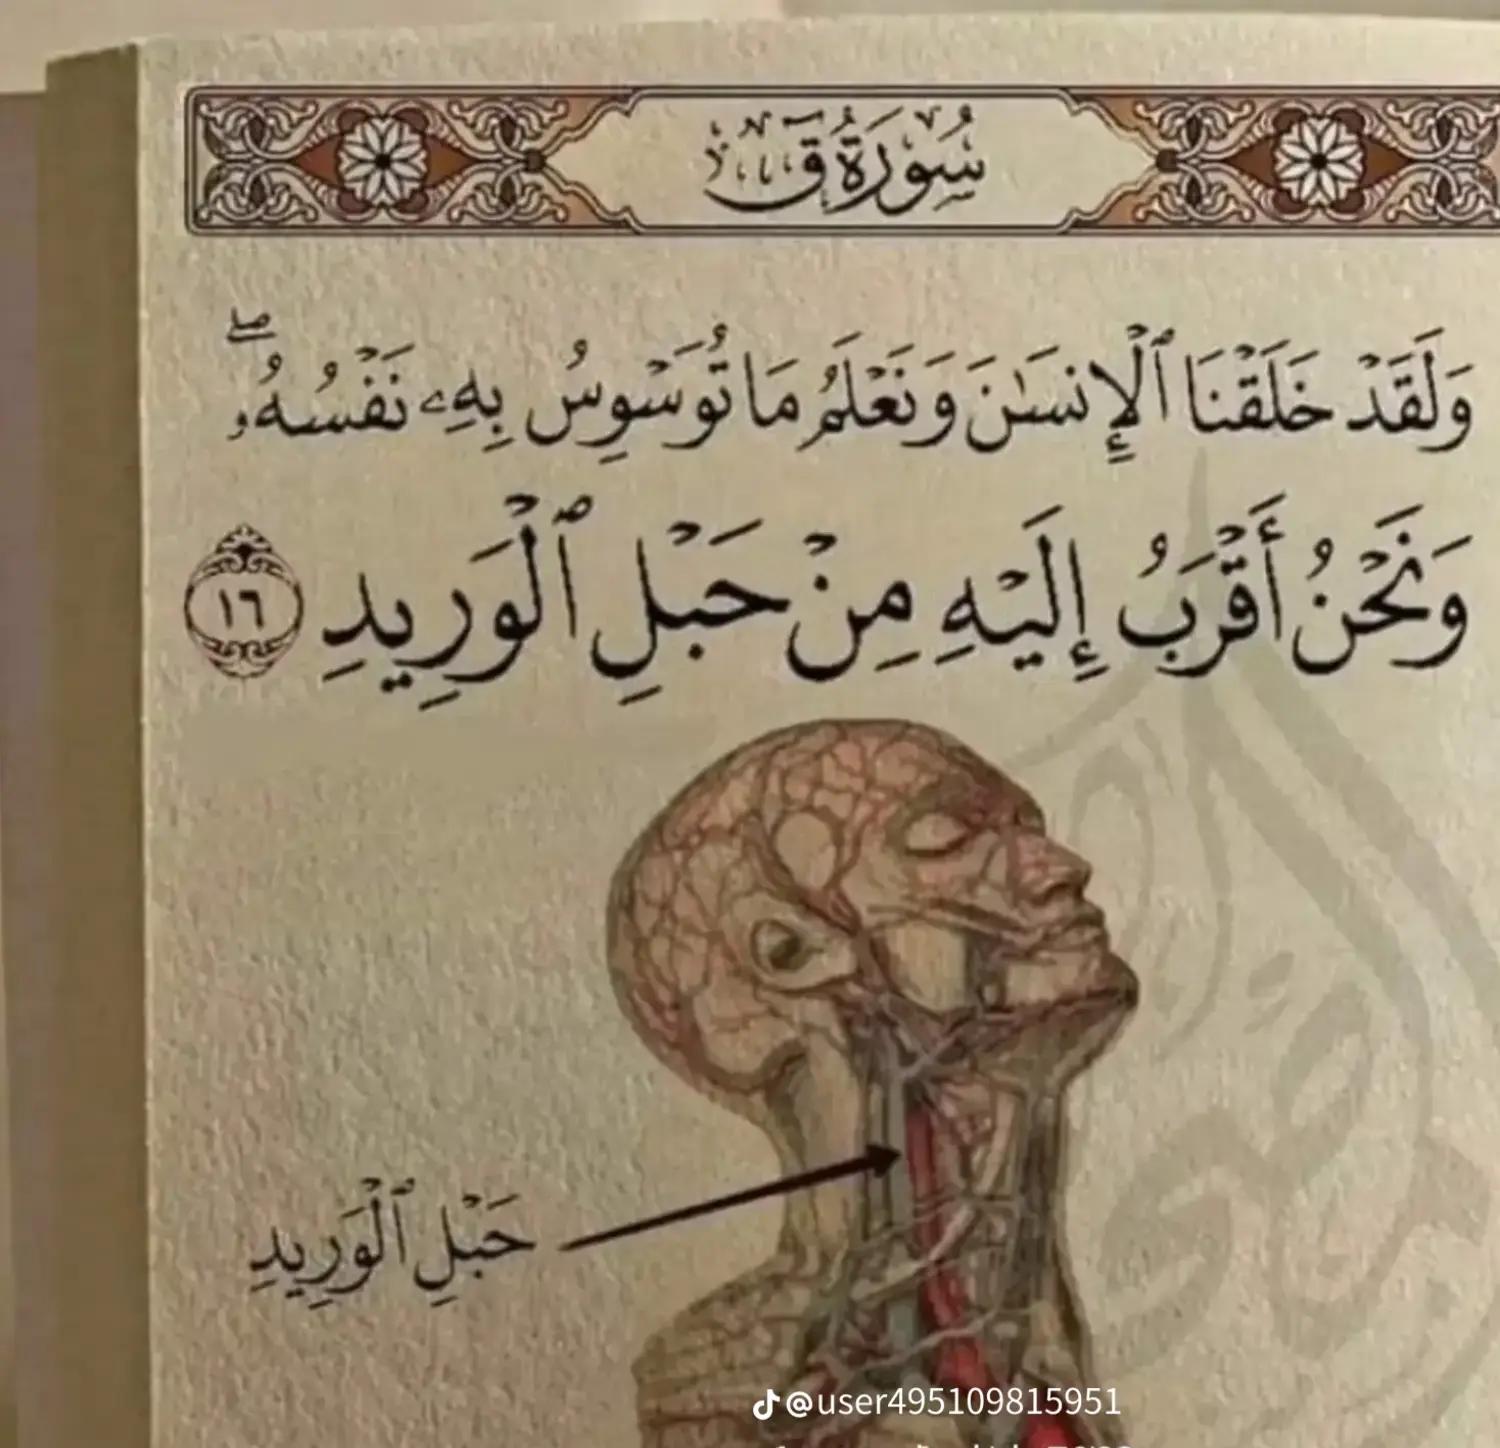 سُورَةُ قٓ
وَلَقَدْ خَلَقْنَا ٱلْإِنسَٰنَ وَنَعْلَمُ مَا تُوَسْوِسُ بِهِۦ نَفْسُهُۥ ۖ
وَنَحْنُ أَقْرَبُ إِلَيْهِ مِنْ حَبْلِ ٱلْوَرِيدِ ١٦
حَبْلِ ٱلْوَرِيدِ
@user495109815951